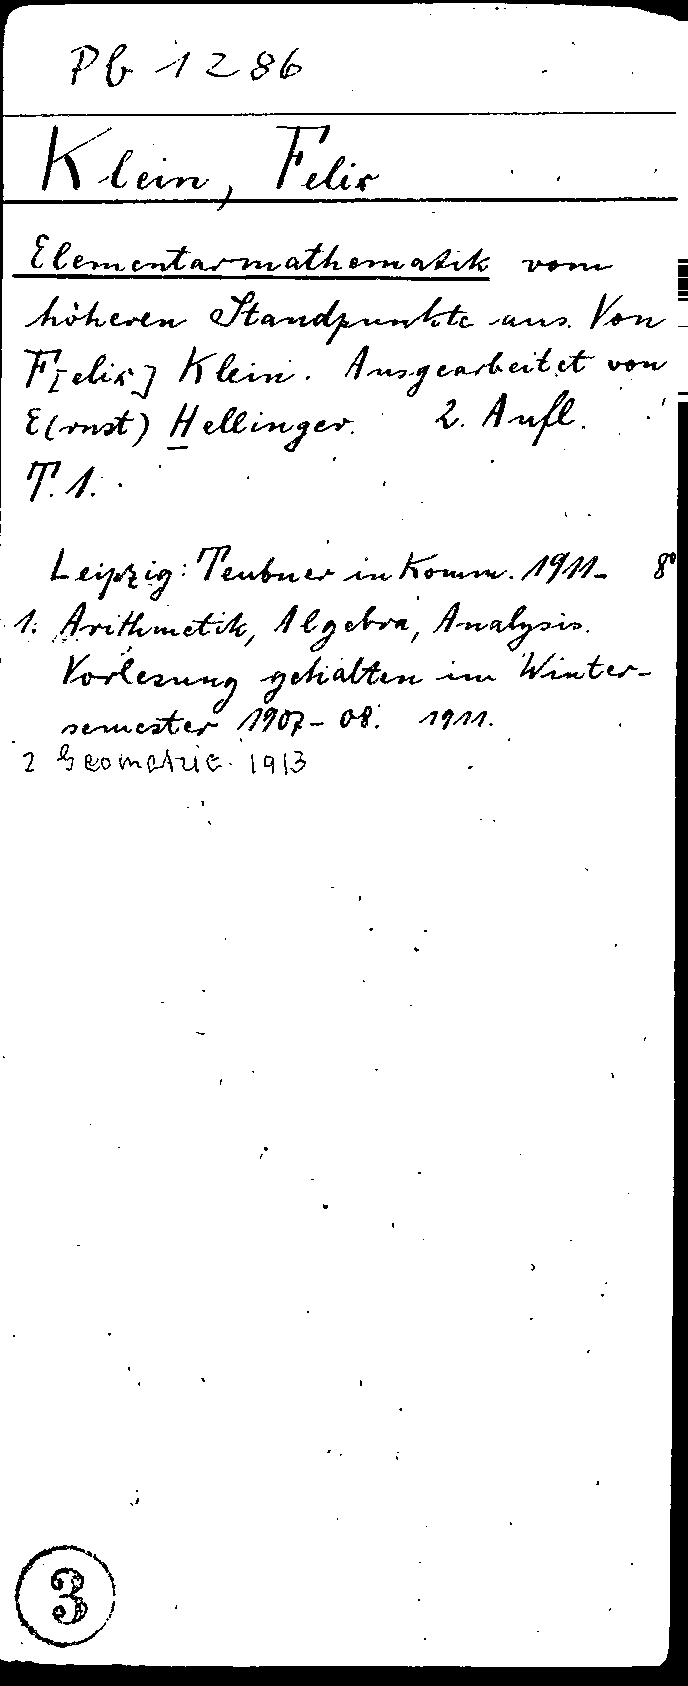 Pb 1286
Klein, Felix
Elementarmathematik vom
höheren Standpunkte aus. Von
F[elix] Klein. Ausgearbeitet von
E(rnst) Hellinger. 2. Aufl.
T. 1.
Leipzig: Teubner in Komm. 1911- 8°
1. Arithmetik, Algebra, Analysis.
Vorlesung gehalten im Winter-
semester 1907-08. 1911.
2 Geometrie. 1913
3